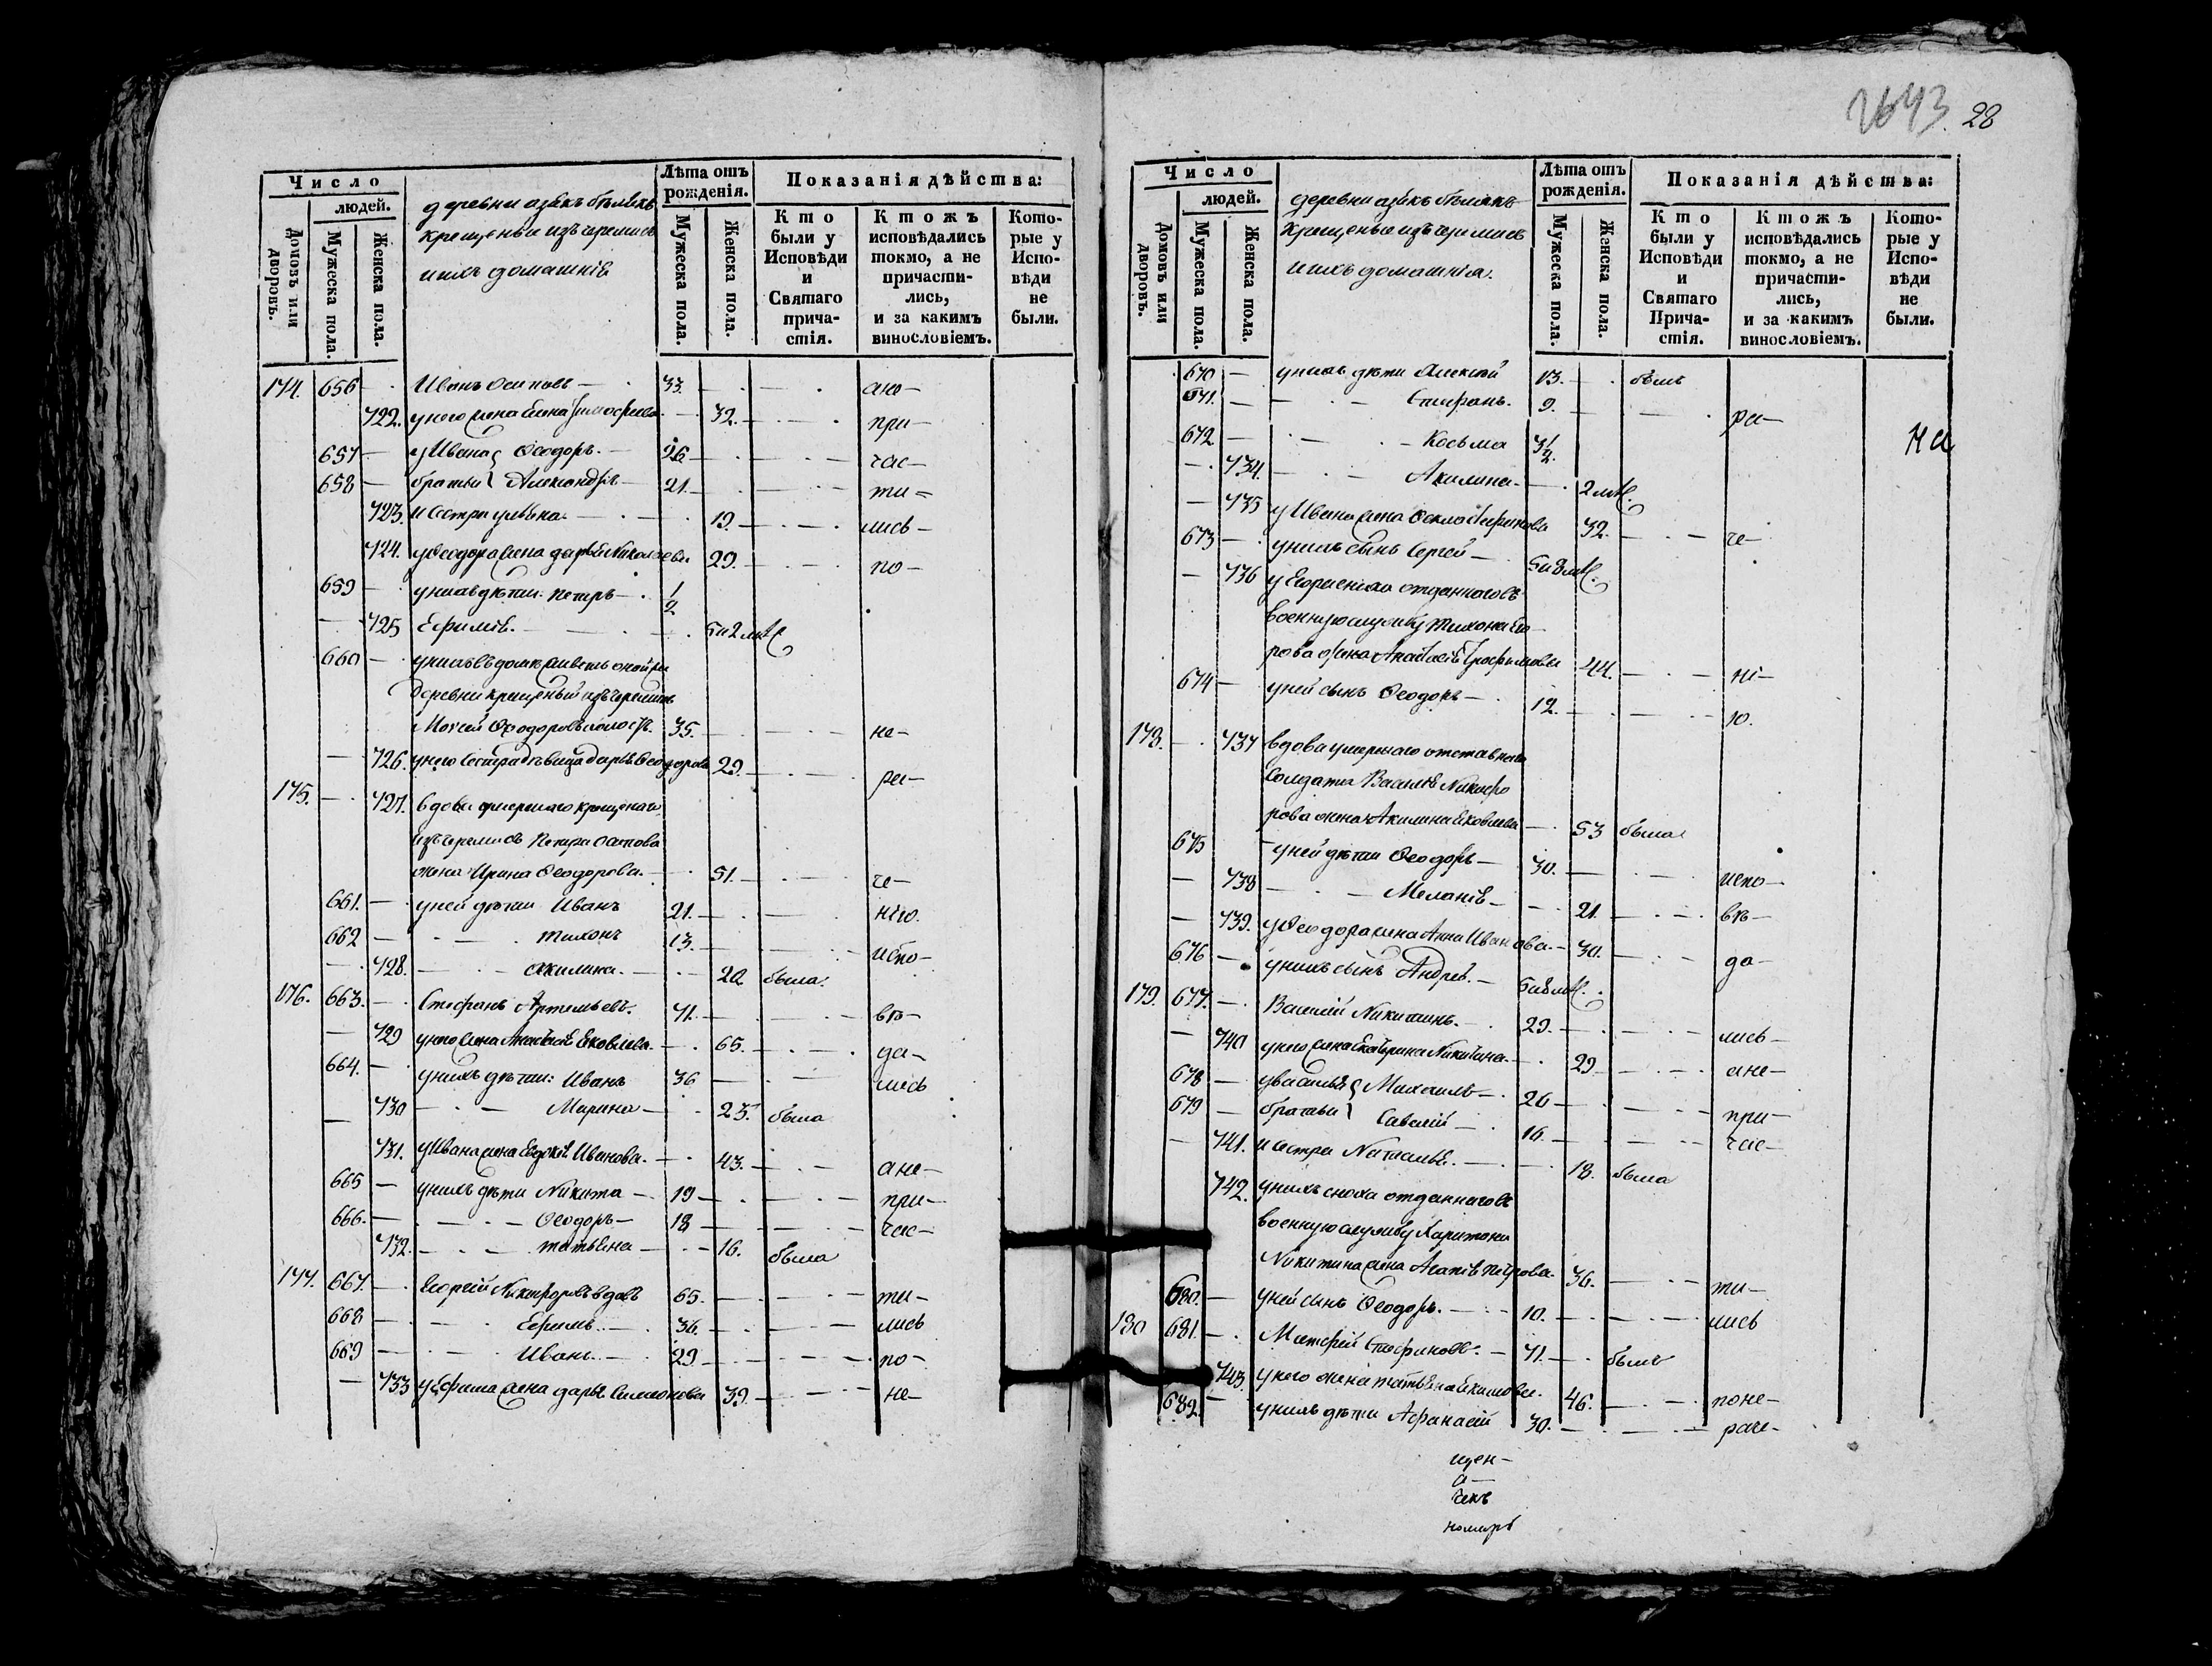 Число
людей.
Домовъ или дворовъ.
Мужеска пола.
Женска пола.
деревни азякъ бѣлякъ
крещеные изъ черемисъ
и ихъ домашніе
Лѣта отъ рожденія.
Мужеска пола.
Женска пола.
Показанія дѣйства:
Кто были у Исповѣди и Святаго причастія.
Ктожъ исповѣдались токмо, а не причастились, и за какимъ винословіемъ.
Которые у Исповѣди не были.
174. 656 — Иванъ Осиповъ — 33. ане—
722. у него жена Елена Тимофеева 32. при—
657 — у Ивана Ѳеодоръ — 26 час—
658 — братьи Александръ — 21. ти—
723. и сестра Ульяна 19. лись—
724. у Ѳеодора жена Дарья Николаева 29. по—
659 — у нихъ дѣти: Петръ — 1/2
725 Ефимія. 5 и 2 мѣс
660 — у нихъ въ домѣ живетъ оной же
деревни крещеный изъ черемисъ
Моисей Ѳеодоровъ холостъ. 35. не—
726. у него сестра дѣвица Дарья Ѳеодорова 29. ра—
175. — 727. вдова умершаго крещенаго
изъ черемисъ Петра Осипова
жена Ирина Ѳеодорова. 51. че—
661. — у ней дѣти Иванъ 21. нію.
662 — Тихонъ 13. испо—
728. Акилина. 20. была.
176. 663. — Стефанъ Артемьевъ. 71. вѣ—
729 у него жена Анастасія Яковлева. 65. да—
664. — у нихъ дѣти: Иванъ 36 лись
730 Марина — 25. была
731. у Ивана жена Евдокія Иванова. 43. ане—
665 — у нихъ дѣти Никита — 19 при—
666. — Ѳеодоръ — 18 час—
732. Татьяна — 16. была
177. 667. — Георгій Никифоровъ вдовъ 65. ти—
668 — Ефимъ — 36. лись
669 — Иванъ — 29 по—
733 у Ефима жена Дарья Симионова 39. не—
2643. 28
Число
людей.
Домовъ или дворовъ.
Мужеска пола.
Женска пола.
деревни азякъ бѣлякъ
Крещеные изъ черемисъ
и ихъ домашнія.
Лѣта отъ рожденія.
Мужеска пола.
Женска пола.
Показанія дѣйства:
Кто были у Исповѣди и Святаго Причастія.
Ктожъ исповѣдались токмо, а не причастились, и за какимъ винословіемъ.
Которые у Исповѣди не были.
670 — у нихъ дѣти Алексѣй 13. былъ
671. — Стефанъ. 9. ра—
672 — Косьма 3 1/2.
734. Акилина — 2 мѣс.
735 у Ивана жена Ѳекла Стефанова 32. че—
673 — у нихъ сынъ Сергей — 5 и 8 мѣс.
736 у Георгія сноха отданнаго въ
военную службу Тихона Его—
рова жена Анастасія Трофимова 44. ні—
674 — у ней сынъ Ѳеодоръ — 12. ю.
178. — 737 вдова умершаго отставнаго
Солдата Василія Никифо
рова жена Акилина Яковлева 53 была
675 — у ней дѣти Ѳеодоръ — 30. испо—
738 Меланія — 21. вѣ—
739. у Ѳеодора жена Анна Иванова. — 30. да—
676 — у нихъ сынъ Андрей. — 5 и 8 мѣс.
179. 677. — Василій Никитинъ. 29. лись—
740 у него жена Екатерина Никитина. 29 ане—
678 — у Василья Михаилъ — 20 при—
679 — братьи Савелій — 16. час—
741. и сестра Наталья. 18. была
742. у нихъ сноха отданнаго въ
военную службу Харитона
Никитина жена Агапія Петрова. 36. ти—
680. — у ней сынъ Ѳеодоръ. — 10. лись
180 681. — Матфей Стефановъ. — 71. былъ
743. у него жена Татьяна Екимова. 46. поне—
682. — у нихъ дѣти Афанасій 30. раче—
на
щен—